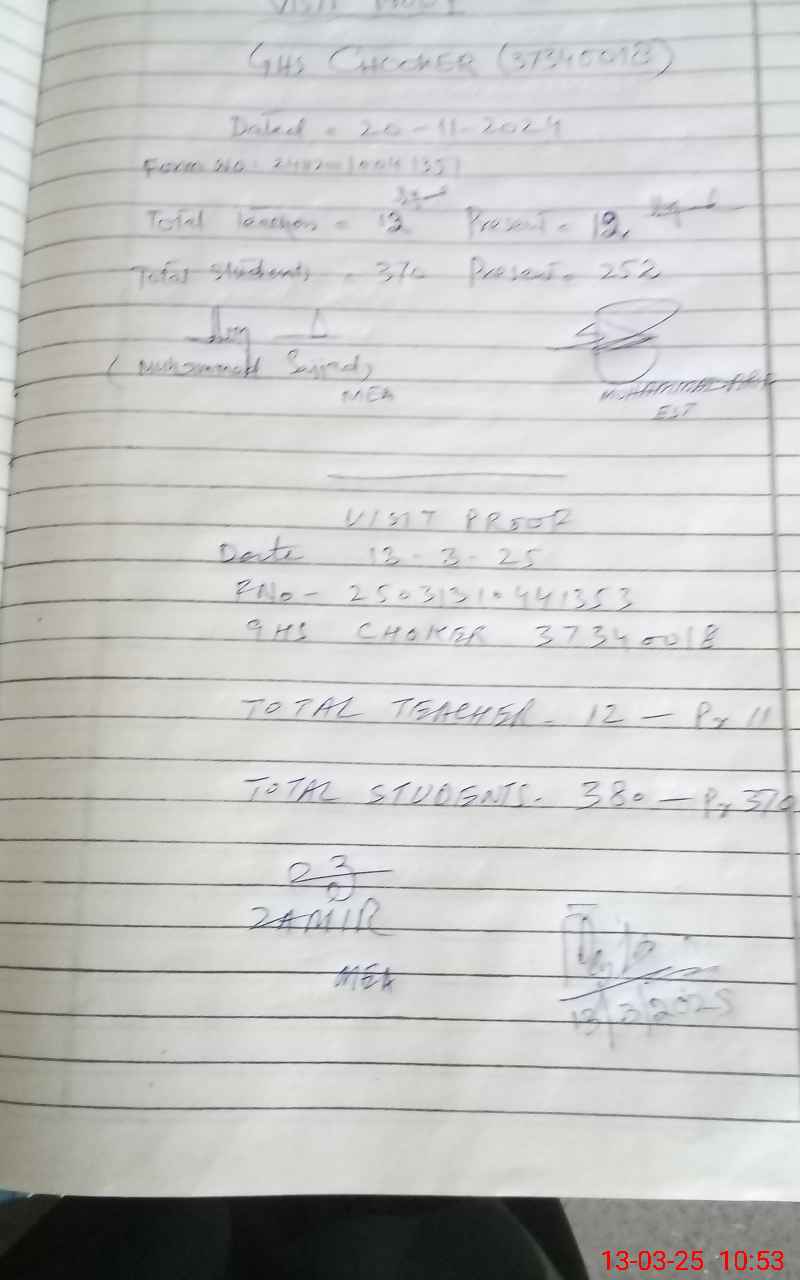 VISIT PROOF
GHS CHOOKER (37340018)
Dated = 20-11-2024
Form No:
Total Teachers = 12 Present = 12
Total Students = 370 Present = 252
(Muhammad Sajjad)
MEA
MUHAMMAD
EST
VISIT PROOF
Date 13-3-25
FNo- 25031310441353
GHS CHOKER 37340018
TOTAL TEACHER- 12 - Pr 11
TOTAL STUDENTS- 380 - Pr 370
ZAMIR
MEA
13/3/2025
13-03-25 10:53